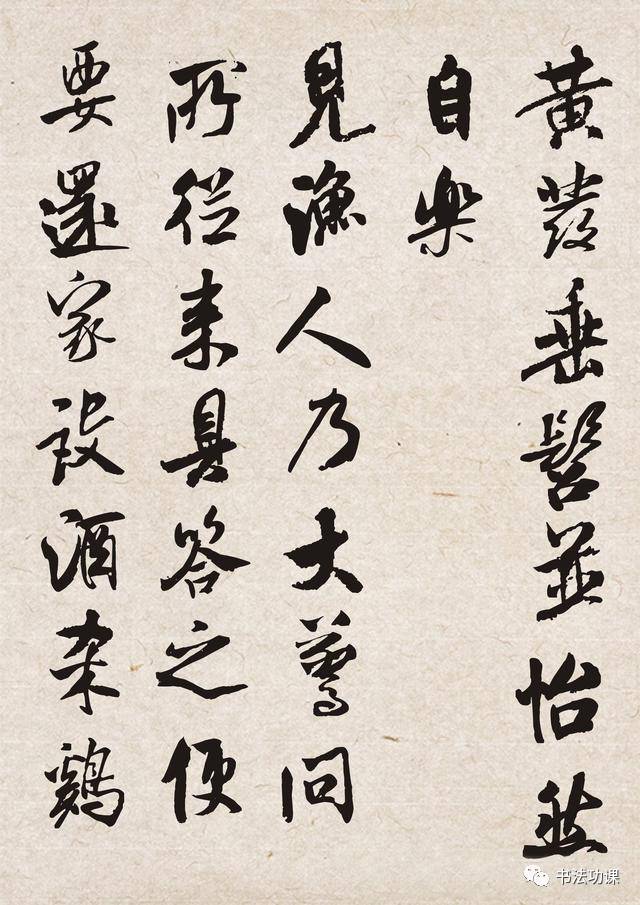 黃發垂髫並怡然
自樂
見漁人乃大驚問
所從来具答之便
要還家設酒杀鷄
书法功课